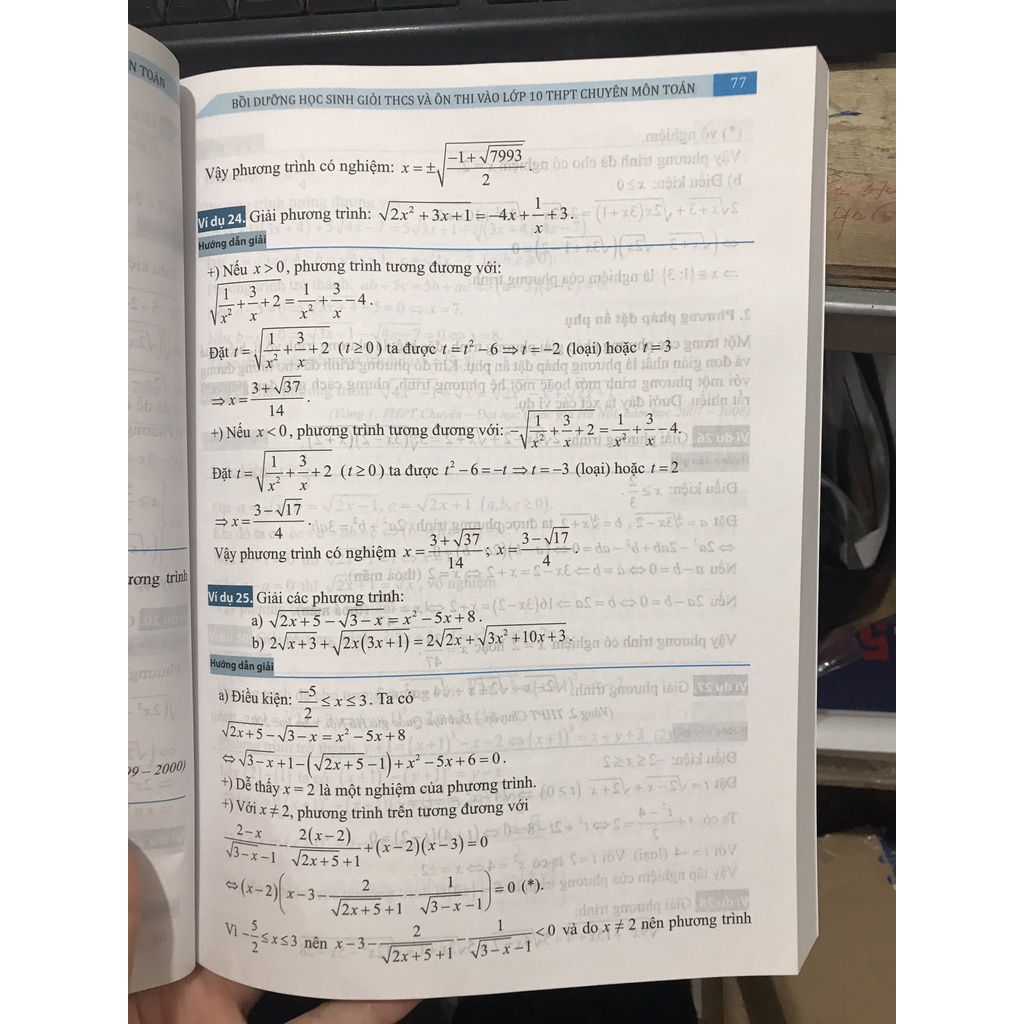 N TOÁN
BỒI DƯỠNG HỌC SINH GIỎI THCS VÀ ÔN THI VÀO LỚP 10 THPT CHUYÊN MÔN TOÁN 77
Vậy phương trình có nghiệm: x = ±√((−1+√7993)/2).
Ví dụ 24. Giải phương trình: √(2x² + 3x + 1) = −4x + 1/x + 3.
Hướng dẫn giải
+) Nếu x > 0, phương trình tương đương với:
√(1/x² + 3/x + 2) = 1/x² + 3/x − 4.
Đặt t = √(1/x² + 3/x + 2) (t ≥ 0) ta được t = t² − 6 ⇒ t = −2 (loại) hoặc t = 3
⇒ x = (3 + √37)/14.
+) Nếu x < 0, phương trình tương đương với: −√(1/x² + 3/x + 2) = 1/x² + 3/x − 4.
Đặt t = √(1/x² + 3/x + 2) (t ≥ 0) ta được t² − 6 = −t ⇒ t = −3 (loại) hoặc t = 2
⇒ x = (3 − √17)/4.
Vậy phương trình có nghiệm x = (3 + √37)/14; x = (3 − √17)/4.
rơng trình
Ví dụ 25. Giải các phương trình:
a) √(2x + 5) − √(3 − x) = x² − 5x + 8.
b) 2√(x + 3) + √(2x(3x + 1)) = 2√(2x) + √(3x² + 10x + 3).
Hướng dẫn giải
a) Điều kiện: −5/2 ≤ x ≤ 3. Ta có
√(2x + 5) − √(3 − x) = x² − 5x + 8
⇔ √(3 − x) + 1 − (√(2x + 5) − 1) + x² − 5x + 6 = 0.
99 – 2000)
+) Dễ thấy x = 2 là một nghiệm của phương trình.
+) Với x ≠ 2, phương trình trên tương đương với
(2 − x)/(√(3 − x) − 1) − 2(x − 2)/(√(2x + 5) + 1) + (x − 2)(x − 3) = 0
⇔ (x − 2)(x − 3 − 2/(√(2x + 5) + 1) − 1/(√(3 − x) − 1)) = 0 (*).
Vì −5/2 ≤ x ≤ 3 nên x − 3 − 2/(√(2x + 5) + 1) − 1/(√(3 − x) − 1) < 0 và do x ≠ 2 nên phương trình